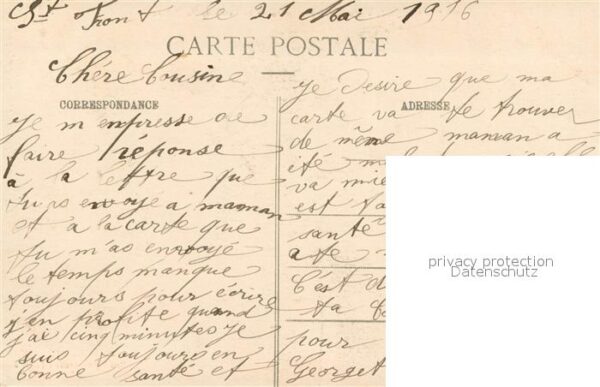 St Front le 21 Mai 1916
CARTE POSTALE
Chére Cousine
CORRESPONDANCE
je m'enpresse de
faire réponse
à la lettre que
tu as envoye a maman
et a la carte que
tu m'as envoyé
le temps manque
toujours pour écrire
j'en profite quand
j'ai cinq minutes je
suis toujours en
bonne santé et
ADRESSE
je desire que ma
carte va te trouver
de même maman a
été
va mie
est
santé
a te
C'est
ta
pour
Georget
privacy protection
Datenschutz